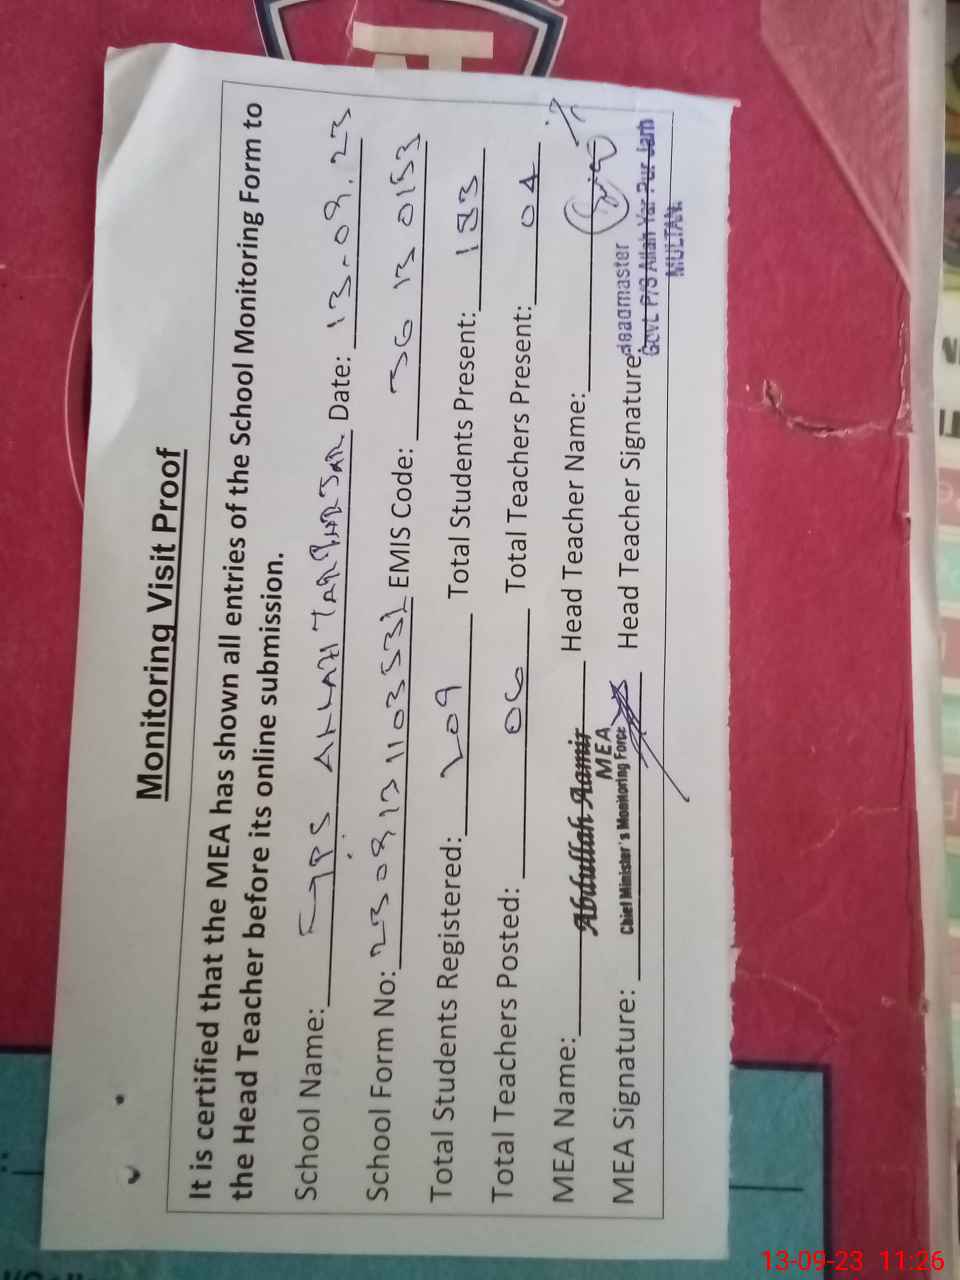 Monitoring Visit Proof
It is certified that the MEA has shown all entries of the School Monitoring Form to
the Head Teacher before its online submission.
School Name: GPS ALLAH YAR PUR JAM Date: 13-09.23
School Form No: EMIS Code: 36 13 0153
Total Students Registered: 209 Total Students Present: 183
Total Teachers Posted: 06 Total Teachers Present: 04
MEA Name: Abdullah Aamir Head Teacher Name:
MEA
Chief Minister's Monitoring Force
MEA Signature: Head Teacher Signature
Headmaster
Govt. P/S Allah Yar Pur Jam
MULTAN.
13-09-23 11:26